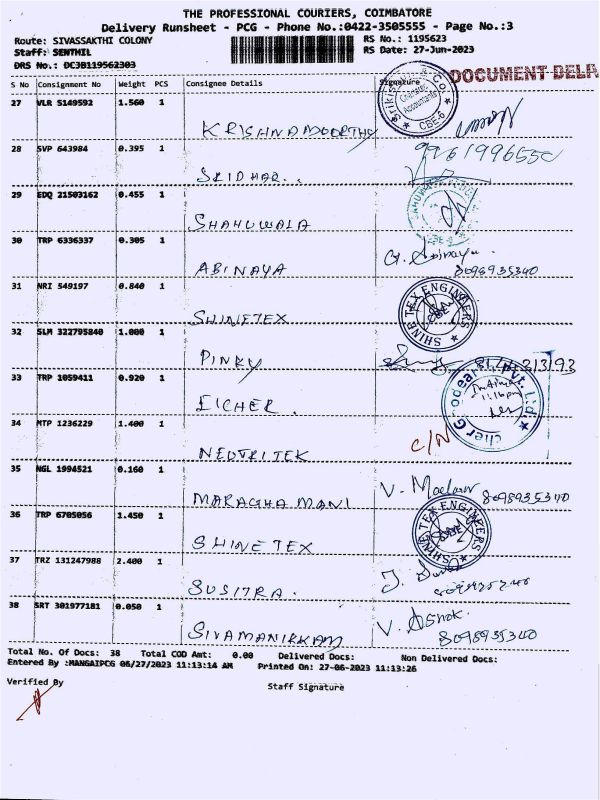 THE PROFESSIONAL COURIERS, COIMBATORE
Delivery Runsheet - PCG - Phone No.:0422-3505555 - Page No.:3
Route: SIVASSAKTHI COLONY
RS No.: 1195623
Staff: SENTHIL
RS Date: 27-Jun-2023
DRS No.: DC3B119562303
DOCUMENT
S No Consignment No Weight PCS Consignee Details Signature
27 VLR 5149592 1.560 1
KRISHNAMOORTHY
28 SVP 643984 0.395 1
SRIDHAR..
29 EDQ 21503162 0.455 1
SHAHUWALA
30 TRP 6336337 0.305 1
ABINAYA 8098935340
31 NRI 549197 0.840 1
SHINETEX
SHINE TEX ENGINEERS
32 SLM 322795840 1.000 1
PINKY
33 TRP 1059411 0.920 1
EICHER.
34 MTP 1236229 1.400 1
C/N
35 NGL 1994521 0.160 1
MARAGHA MANI 8098935340
36 TRP 6705056 1.450 1
SHINETEX
SHINE TEX ENGINEERS
37 TRZ 131247988 2.400 1
SUSITRA.
38 SRT 301977181 0.050 1
V. Ashok.
SIVAMANIKKAM 8098935340
Total No. Of Docs: 38 Total COD Amt: 0.00 Delivered Docs: Non Delivered Docs:
Entered By :MANGAIPCG 06/27/2023 11:13:14 AM Printed On: 27-06-2023 11:13:26
Verified By
Staff Signature